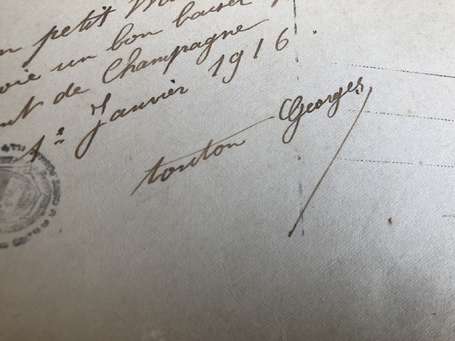 n petit
oie un bon baiser
nt de Champagne
1er Janvier 1916.
tonton Georges